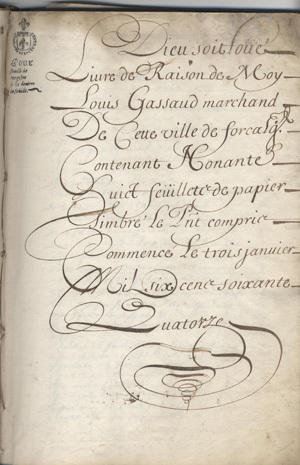 Pour
feuille de
Dieu soit loué
Livre de Raison de Moy
Louis Gassaud marchand
De Cette ville de forcalqr.
Contenant Nonante
Huict feüillets de papier
Timbré le Pnt compris
Commencé Le trois janvier
Mil six cens soixante
Quatorze